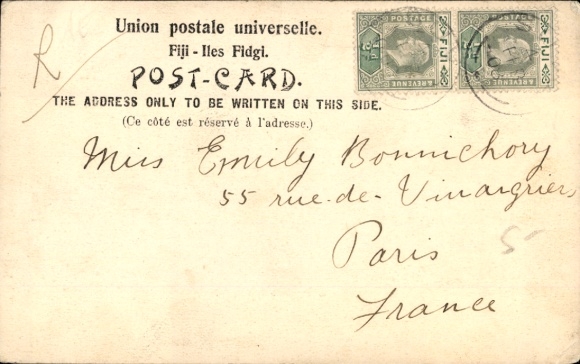 Union postale universelle.
Fiji - Iles Fidgi.
POST-CARD.
THE ADDRESS ONLY TO BE WRITTEN ON THIS SIDE.
(Ce côté est réservé à l'adresse.)
R
POSTAGE
POSTAGE
FIJI
FIJI
& REVENUE
& REVENUE
Miss Emily Bonnichory
55 rue-de-Vinaigriers
Paris
5
France